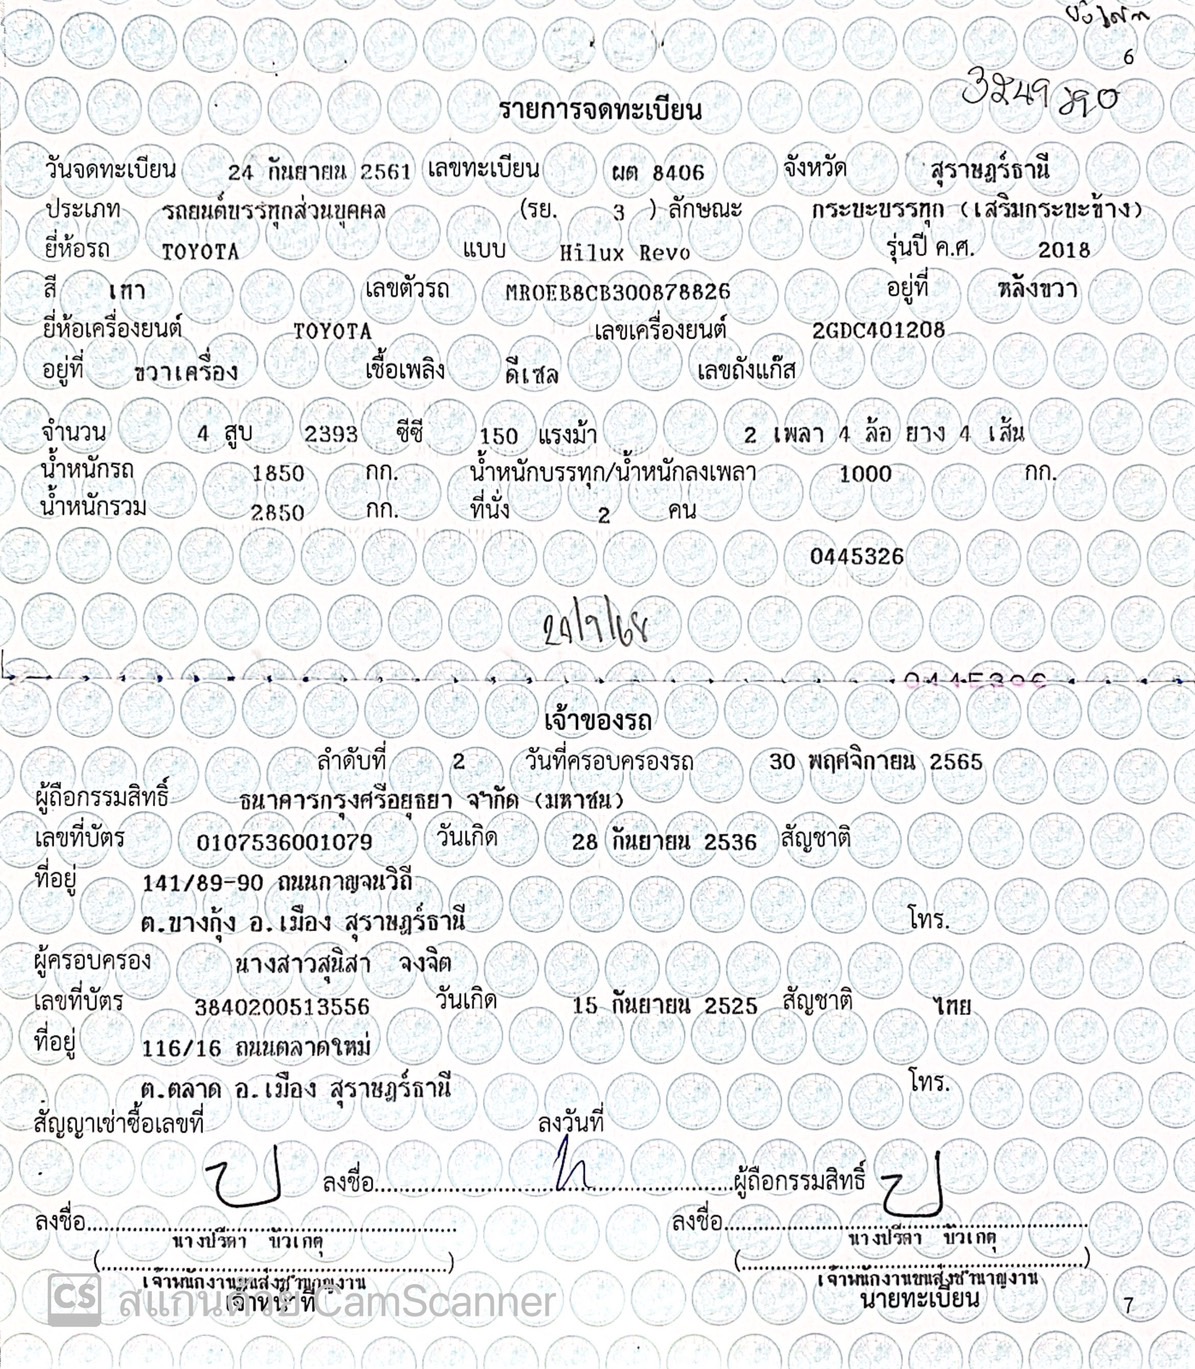 6
รายการจดทะเบียน
วันจดทะเบียน 24 กันยายน 2561 เลขทะเบียน ผต 8406 จังหวัด สุราษฎร์ธานี
ประเภท รถยนต์บรรทุกส่วนบุคคล (รย. 3 ) ลักษณะ กระบะบรรทุก (เสริมกระบะข้าง)
ยี่ห้อรถ TOYOTA แบบ Hilux Revo รุ่นปี ค.ศ. 2018
สี เทา เลขตัวรถ MR0EB8CB300878826 อยู่ที่ หลังขวา
ยี่ห้อเครื่องยนต์ TOYOTA เลขเครื่องยนต์ 2GDC401208
อยู่ที่ ขวาเครื่อง เชื้อเพลิง ดีเซล เลขถังแก๊ส
จำนวน 4 สูบ 2393 ซีซี 150 แรงม้า 2 เพลา 4 ล้อ ยาง 4 เส้น
น้ำหนักรถ 1850 กก. น้ำหนักบรรทุก/น้ำหนักลงเพลา 1000 กก.
น้ำหนักรวม 2850 กก. ที่นั่ง 2 คน
0445326
เจ้าของรถ
ลำดับที่ 2 วันที่ครอบครองรถ 30 พฤศจิกายน 2565
ผู้ถือกรรมสิทธิ์ ธนาคารกรุงศรีอยุธยา จำกัด (มหาชน)
เลขที่บัตร 0107536001079 วันเกิด 28 กันยายน 2536 สัญชาติ
ที่อยู่ 141/89-90 ถนนกาญจนวิถี
ต.บางกุ้ง อ.เมือง สุราษฎร์ธานี โทร.
ผู้ครอบครอง นางสาวสุนิสา จงจิต
เลขที่บัตร 3840200513556 วันเกิด 15 กันยายน 2525 สัญชาติ ไทย
ที่อยู่ 116/16 ถนนตลาดใหม่
ต.ตลาด อ.เมือง สุราษฎร์ธานี โทร.
สัญญาเช่าซื้อเลขที่ ลงวันที่
ลงชื่อ............ผู้ถือกรรมสิทธิ์
ลงชื่อ............ ลงชื่อ............
นางปรีดา บัวเกตุ นางปรีดา บัวเกตุ
(............) (............)
เจ้าพนักงานขนส่งชำนาญงาน เจ้าพนักงานขนส่งชำนาญงาน
เจ้าหน้าที่ นายทะเบียน
CS สแกนด้วย CamScanner
7